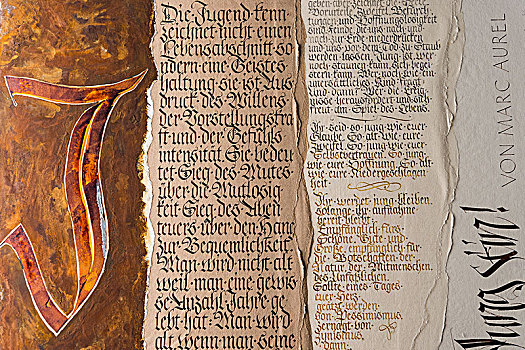 J
Die Jugend kenn
zeichnet nicht einen
Lebensabschnitt so
ndern eine Geistes
haltung sie ist Aus
druck des Willens
der Vorstellungskra
ft und der Gefühls
intensität. Sie bedeu
tet Sieg des Mutes
über die Mutlosig
keit Sieg des Aben
teuers über den Hang
zur Bequemlichkeit.
Man wird nicht alt
weil man eine gewis
se Anzahl Jahre ge
lebt hat: Man wird
alt, wenn man seine
Vorurteile, Zweifel, Befürch
tungen und Hoffnungslosigkeit
sind Feinde, die uns nach und
nach zur Erde niederdrücken
und uns vor dem Tod zu Staub
werden lassen. Jung ist, wer
noch staunen kann, sich begei
stern kann. Wer noch wie ein
unersättliches Kind fragt:
Und dann? Wer die Ereig
nisse herausfordert und sich
freut am Spiel des Lebens.
Ihr seid so jung wie euer
Glaube. So alt wie eure
Zweifel. So jung wie euer
Selbstvertrauen. So jung
wie eure Hoffnung. So alt
wie eure Niedergeschlagen
heit.
Ihr werdet jung bleiben,
solange ihr aufnahme
bereit bleibt:
Empfänglich fürs
Schöne, Gute und
Große, empfänglich für
die Botschaften der
Natur, der Mitmenschen,
des Unfaßlichen.
Sollte eines Tages
euer Herz
geätzt werden
von Pessimismus,
zernagt von
Zynismus,
dann
VON MARC AUREL